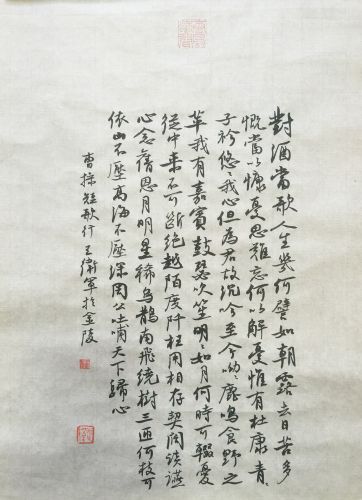 對酒當歌人生幾何譬如朝露去日苦多
慨當以慷憂思難忘何以解憂惟有杜康青
子衿悠〻我心但為君故沉吟至今呦〻鹿鳴食野之
苹我有嘉賓鼓瑟吹笙明〻如月何時可輟憂
從中來不可斷絕越陌度阡枉用相存契闊談讌
心念舊恩月明星稀烏鵲南飛繞樹三匝何枝可
依山不厭高海不厭深周公吐哺天下歸心
曹操短歌行 王衛軍於金陵